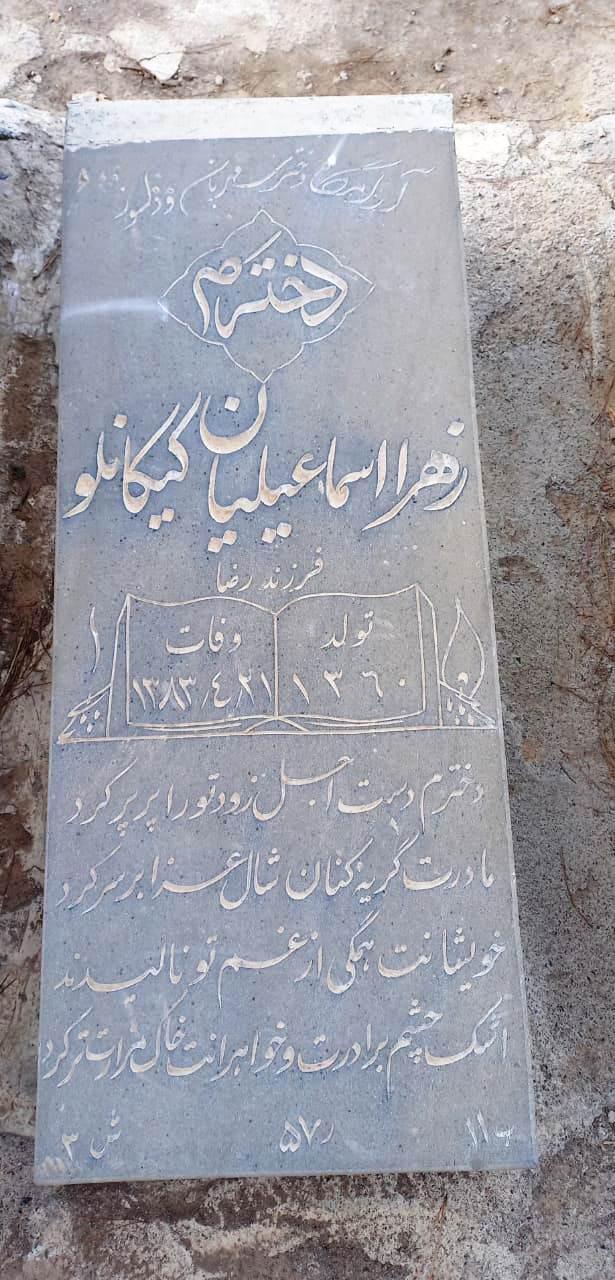 آرامگاه دختری مهربان و دلسوز
دخترم
زهرا اسماعیلیان کیکانلو
فرزند رضا
تولد وفات
۱۳۶۰ ۱۳۸۳٫۴٫۲۱
دخترم دست اجل زود تو را پرپر کرد
مادرت گریه کنان شال عزا بر سر کرد
خویشانت همگی از غم تو نالیدند
اشک چشم برادرت و خواهرانت خاک مزارت تر کرد
ب ۱۱ ر ۵۷ ش ۳